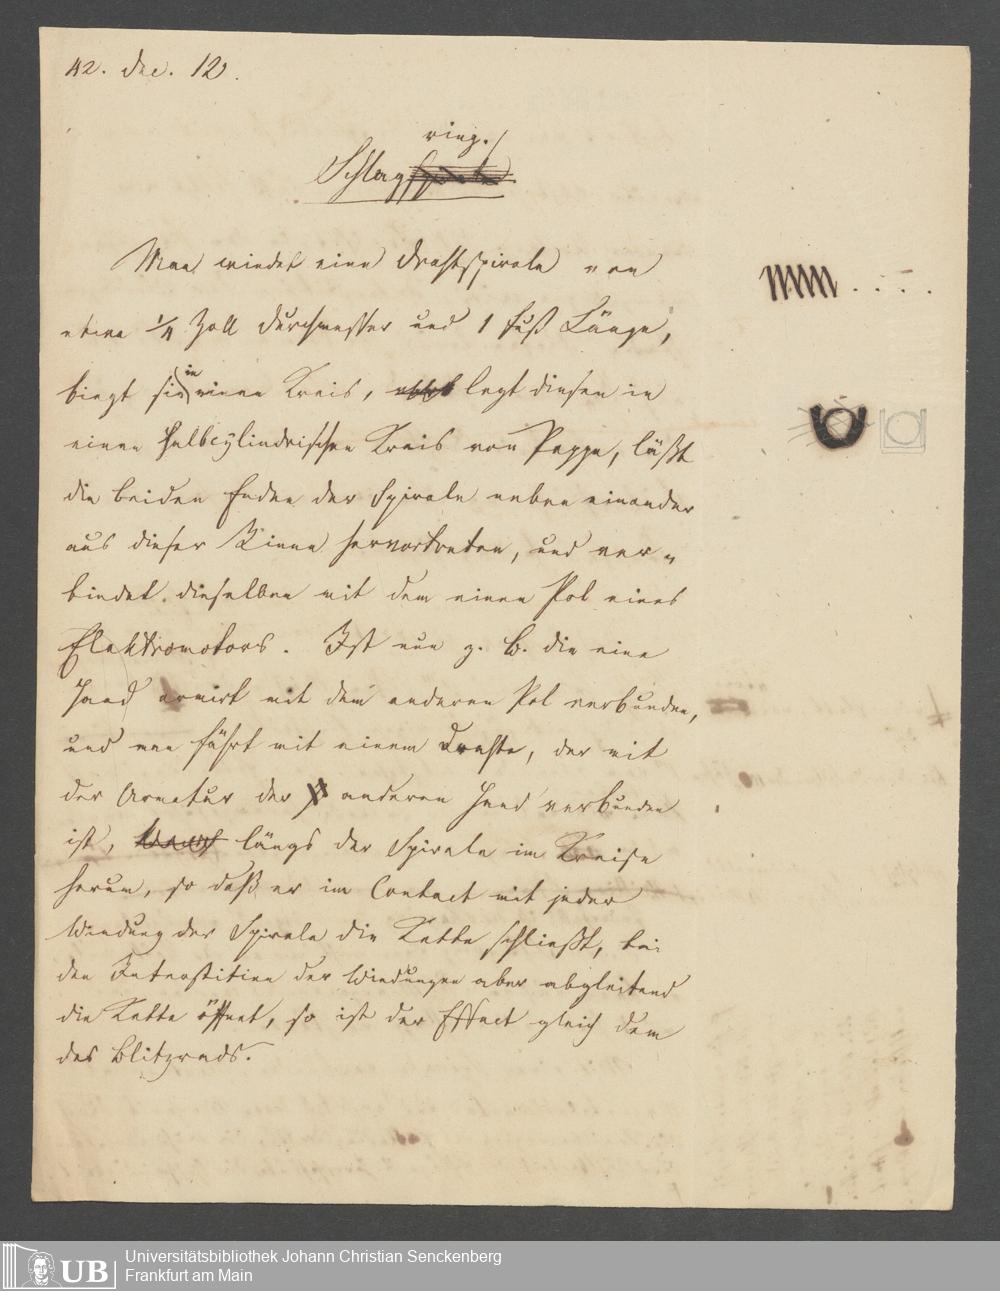 42. Dec. 12.
ring.
Schlag
Man windet eine Drahtspirale von
etwa 1/4 Zoll Durchmesser und 1 Fuß Länge,
biegt sie in einen Kreis, legt diesen in
einen halbcylindrischen Kreis von Pappe, läßt
die beiden Enden der Spirale neben einander
aus dieser Rinne hervortreten, und ver-
bindet dieselben mit dem einen Pol eines
Elektromotors. Ist nun z. B. die eine
Hand armirt mit dem anderen Pol verbunden,
und man fährt mit einem Drahte, der mit
der Armatur der anderen Hand verbunden
ist, längs der Spirale im Kreise
herum, so daß er im Contact mit jeder
Windung der Spirale die Kette schließt, bei
den Interstitien der Windungen aber abgleitend
die Kette öffnet, so ist der Effect gleich dem
des Blitzrads.
UB
Universitätsbibliothek Johann Christian Senckenberg
Frankfurt am Main